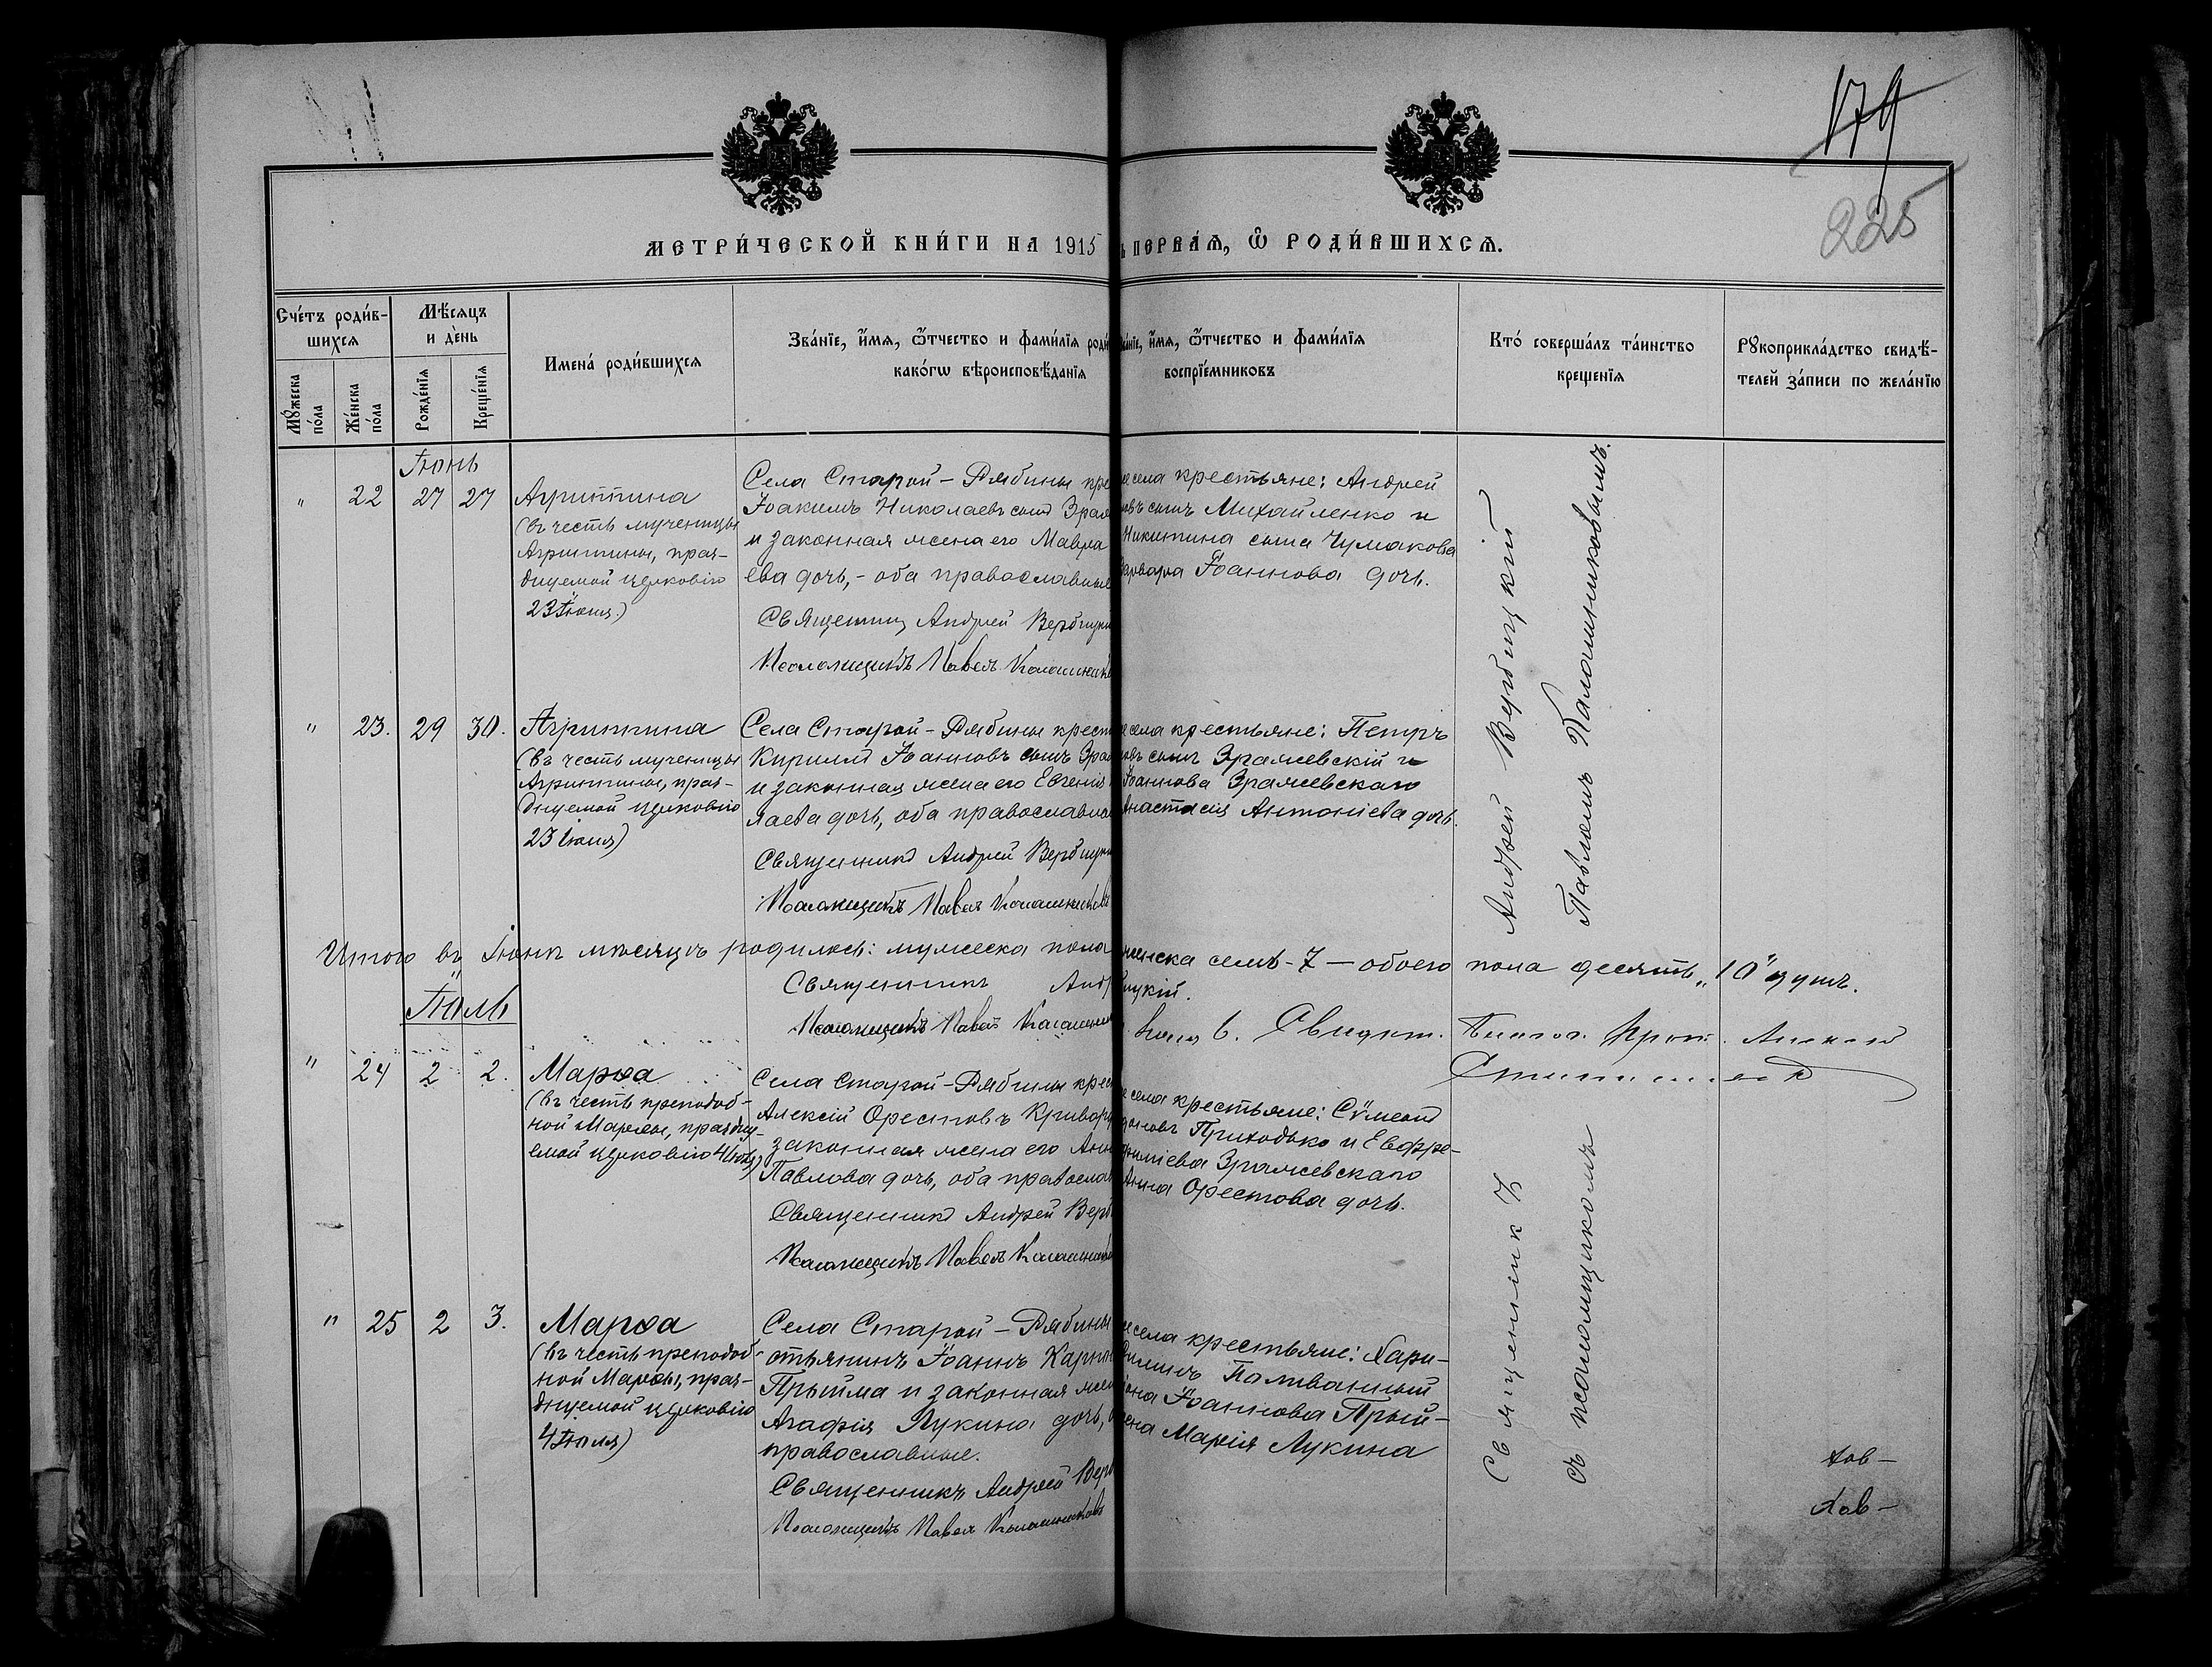 179
225
МЕТРИ́ЧЕСКОЙ КНИ́ГИ НА 1915
ПЕРВА́Я, Ѽ РОДИ́ВШИХСЯ.
Сче́тъ роди́в-
шихся
Мѣ́сяцъ
и де́нь
Му́жеска по́ла
Же́нска по́ла
Рожде́нїя
Креще́нїя
Имена́ роди́вшихся
Зва́нїе, и҆́мя, ѻ҆́тчество и фами́лїя роди
како́гѡ вѣроисповѣ́данїя
ва́нїе, и҆́мя, ѻ҆́тчество и фами́лїя
воспрїе́мниковъ
Кто́ соверша́лъ та́инство
креще́нїя
Рꙋкоприкла́дство свидѣ́-
телей за́писи по жела́нїю
Іюнь
" 22 27 27
Агриппина
(въ честь мученицы
Агриппины, праз-
днуемой церковію
23 Іюня.)
Села Старой-Рябины кре
Іоакимъ Николаевъ сынъ Зраж
и законная жена его Мавра
ева дочь, - оба православные
Священник Андрей Вербицки
Псаломщикъ Павелъ Калашников
села крестьяне: Андрей
овъ сынъ Михайленко и
Никитина сына Чумакова
варвара Іоаннова дочь.
" 23. 29 30.
Агриппина
(въ честь мученицы
Агриппины, праз-
днуемой церковію
23 Іюня)
Села Старой-Рябины крест
Кириллъ Іоанновъ сынъ Зраж
и законная жена его Евгенія
лаева дочь, оба православны
Священникъ Андрей Вербицки
Псаломщикъ Павелъ Калашниковъ
села крестьяне: Петръ
овъ сынъ Зражевскій и
Іоаннова Зражевскаго
Анастасія Антоніева дочь.
Андрей Вербицкій
Павломъ Калашниковымъ.
Итого въ Іюнѣ мѣсяцѣ родилось: мужеска пола
женска семь-7 — обоего пола десять „10" душъ.
Священникъ Анд
ицкій.
Псаломщикъ Павелъ Калашник
Іюль
" 24 2 2.
Марѳа
(въ честь преподоб-
ной Марѳы, праздну-
емой церковію 4 Іюля)
Села Старой-Рябины крес
Алексій Орестовъ Кривору
законная жена его Анн
Павлова дочь, оба православ
Священникъ Андрей Верб
Псаломщикъ Павелъ Калашников
села крестьяне: Сѵмеонъ
оновъ Приходько и Евфро-
Зражевскаго
Анна Орестова дочь.
" 25 2 3.
Марѳа
(въ честь преподоб-
ной Марѳы, праз-
днуемой церковію
4 Іюля)
Села Старой-Рябины
стьянинъ Іоаннъ Карпов
Прыйма и законная жен
Агафія Лукина дочь,
православные.
Священникъ Андрей Верб
Псаломщикъ Павелъ Калашниковъ
села крестьяне: Хари-
Поливанный
Іоаннова Прый-
ена Марія Лукина
Священникъ
съ псаломщикомъ